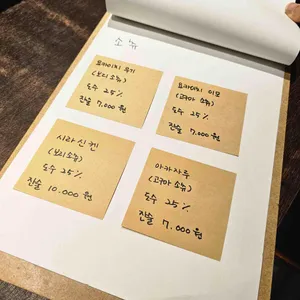 소츄
유카이치 무기
(보리소츄)
도수 25%
잔술 7,000원
유카이치 이모
(고구마 소츄)
도수 25%
잔술 7,000원
시라신켄
(보리소츄)
도수 25%
잔술 10,000원
아카자루
(고구마 소츄)
도수 25%
잔술 7,000원